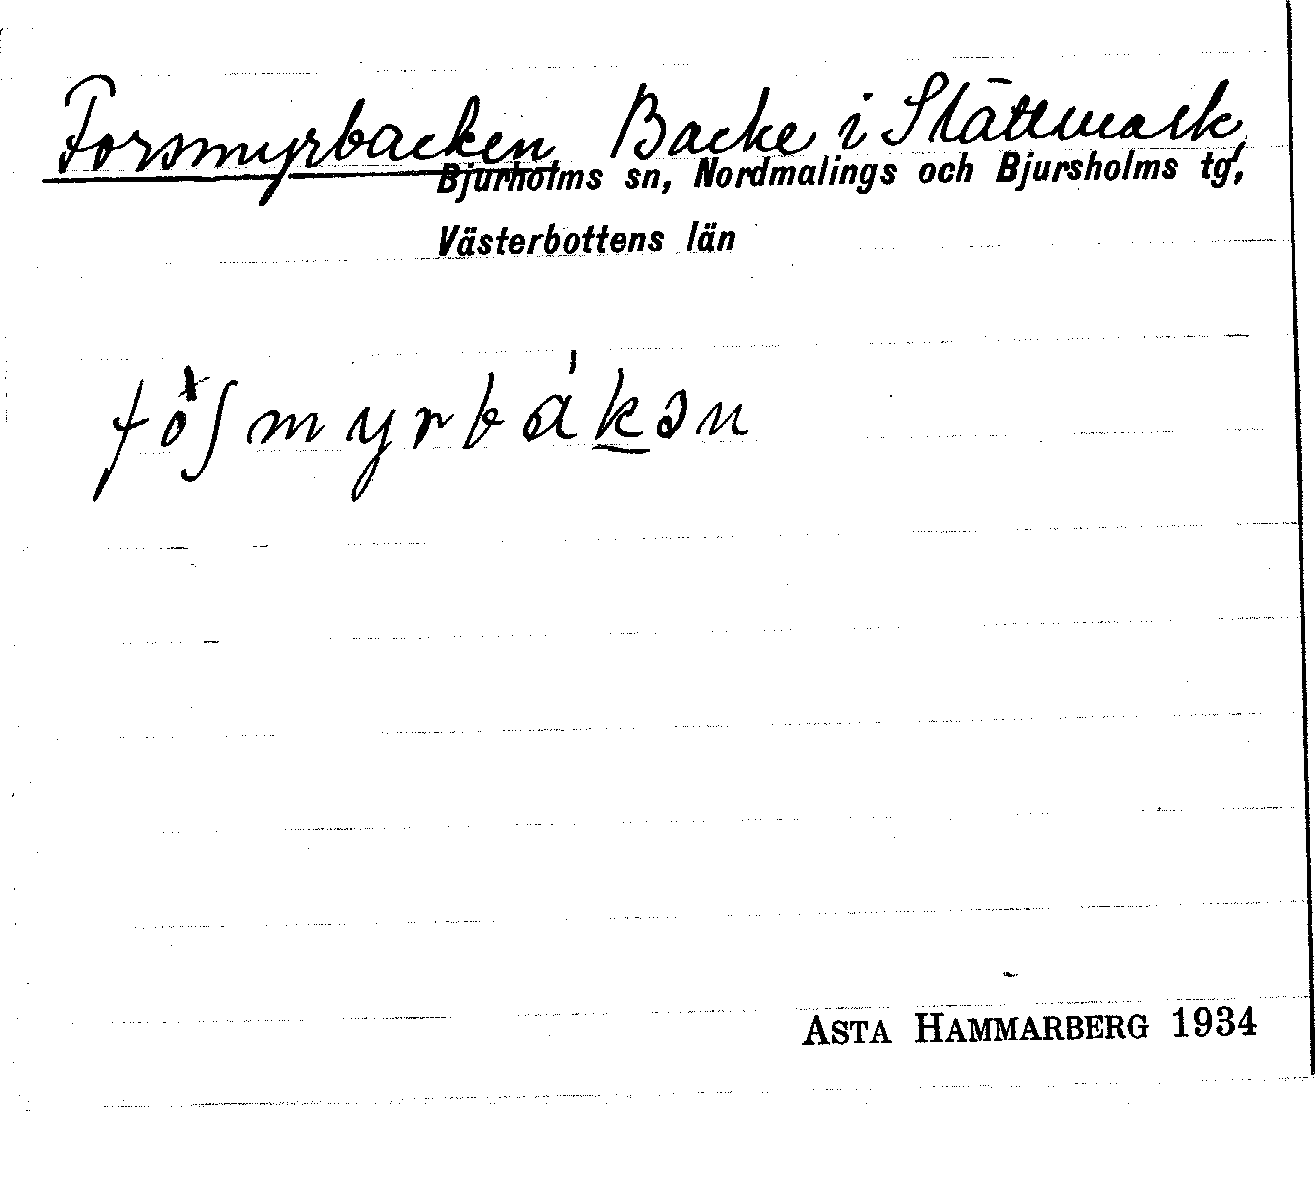 Forsmyrbacken Backe i Slättmark,
Bjurholms sn, Nordmalings och Bjursholms tg,
Västerbottens län
föʃmyrbákən
ASTA HAMMARBERG 1934